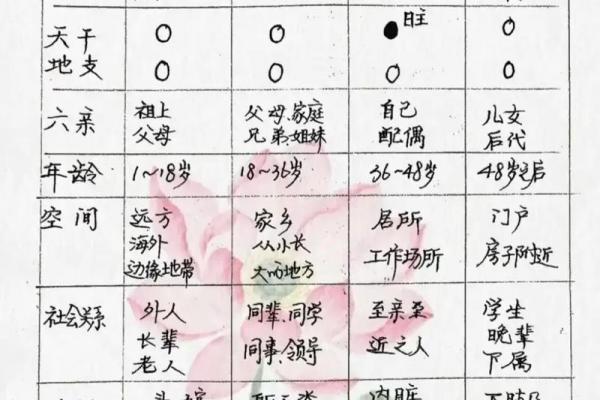 天干
地支
○ ○ ●旺 ○
○ ○ ○ ○
六亲
祖上
父母
父母.家庭
兄弟.姐妹
自己
配偶
儿女
后代
年龄
1~18岁
18~36岁
36~48岁
48岁后
空间
远方
海外
边缘地带
家乡
从小长
大的地方
居所
工作场所
门户
房子附近
社会关系
外人
长辈
老人
同辈.同学
同事.领导
至亲至
近之人
学生
晚辈
下属
内脏